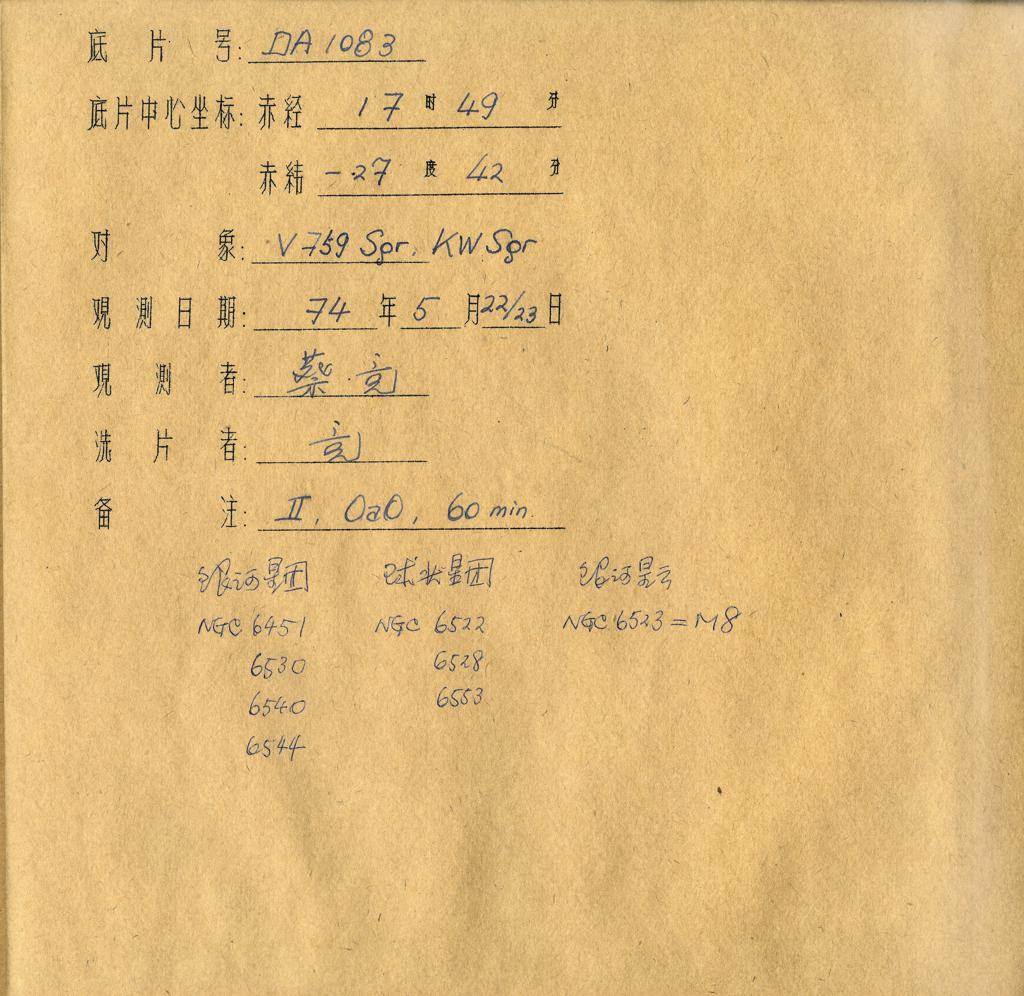 底片号: DA1083
底片中心坐标: 赤经 17 时 49 分
赤纬 -27 度 42 分
对象: V759 Sgr, KW Sgr
观测日期: 74 年 5 月 22/23 日
观测者: 蔡 竞
洗片者: 竞
备注: II, OaO, 60 min.
银河星团 球状星团 银河星云
NGC 6451 NGC 6522 NGC 6523 = M8
6530 6528
6540 6553
6544